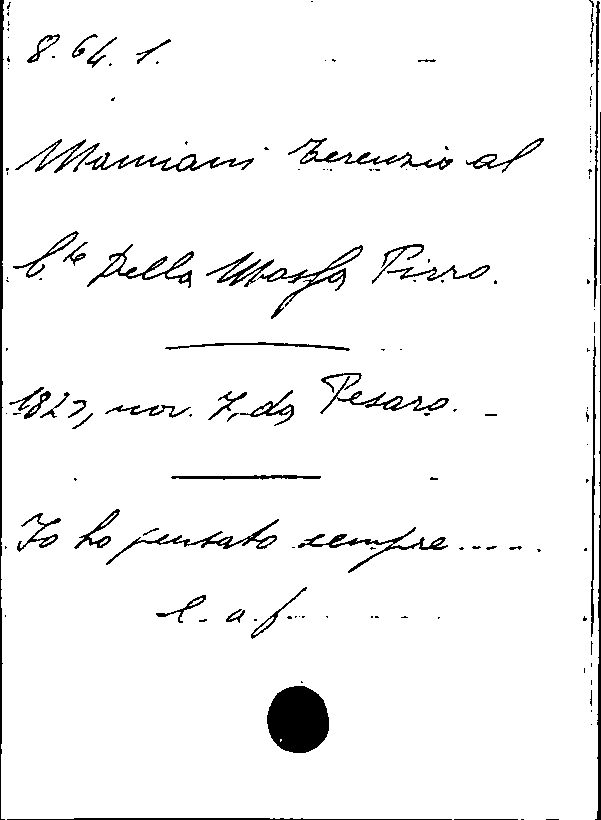 8. 64. 1.
Mamiani Terenzio al
C.te Della Massa Pirro.
1827, nov. 7, da Pesaro.
Io ho pensato sempre.....
l. a. f.